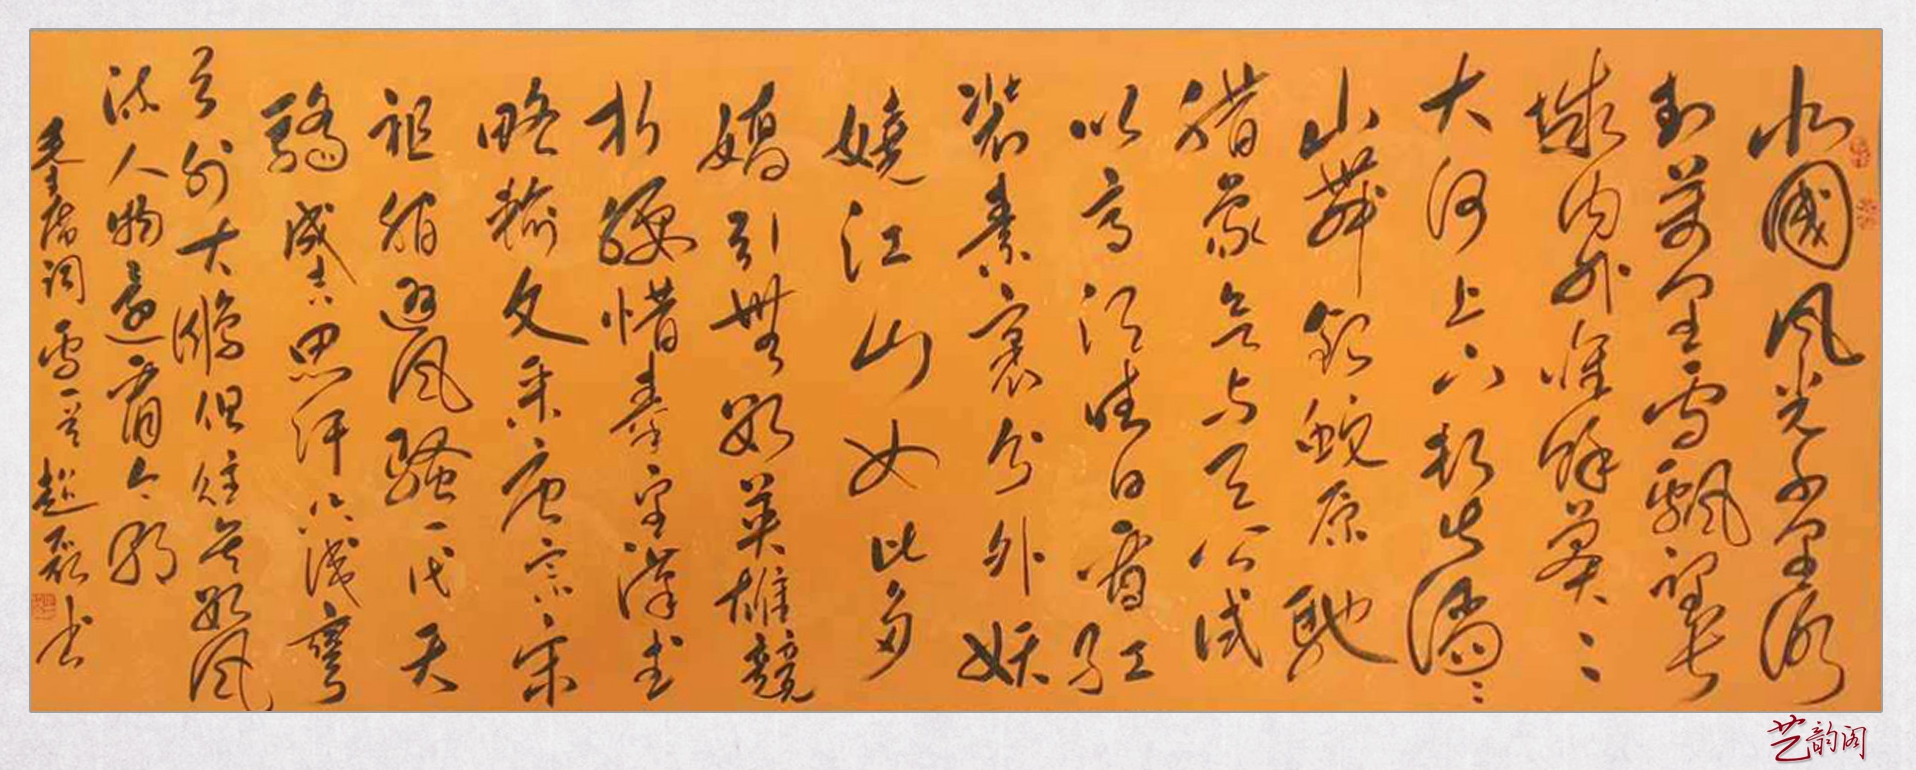 北國風光千里冰
封萬里雪飄望長
城内外惟餘莽〻
大河上下頓失滔〻
山舞銀蛇原馳
蜡象欲与天公試
比高須晴日看紅
裝素裹分外妖
嬈江山如此多
嬌引無數英雄競
折腰惜秦皇漢武
略輸文采唐宗宋
祖稍遜風騷一代天
驕成吉思汗只識彎
弓射大雕俱往矣數風
流人物還看今朝
毛主席詞雪一首 趙 書
艺韵阁